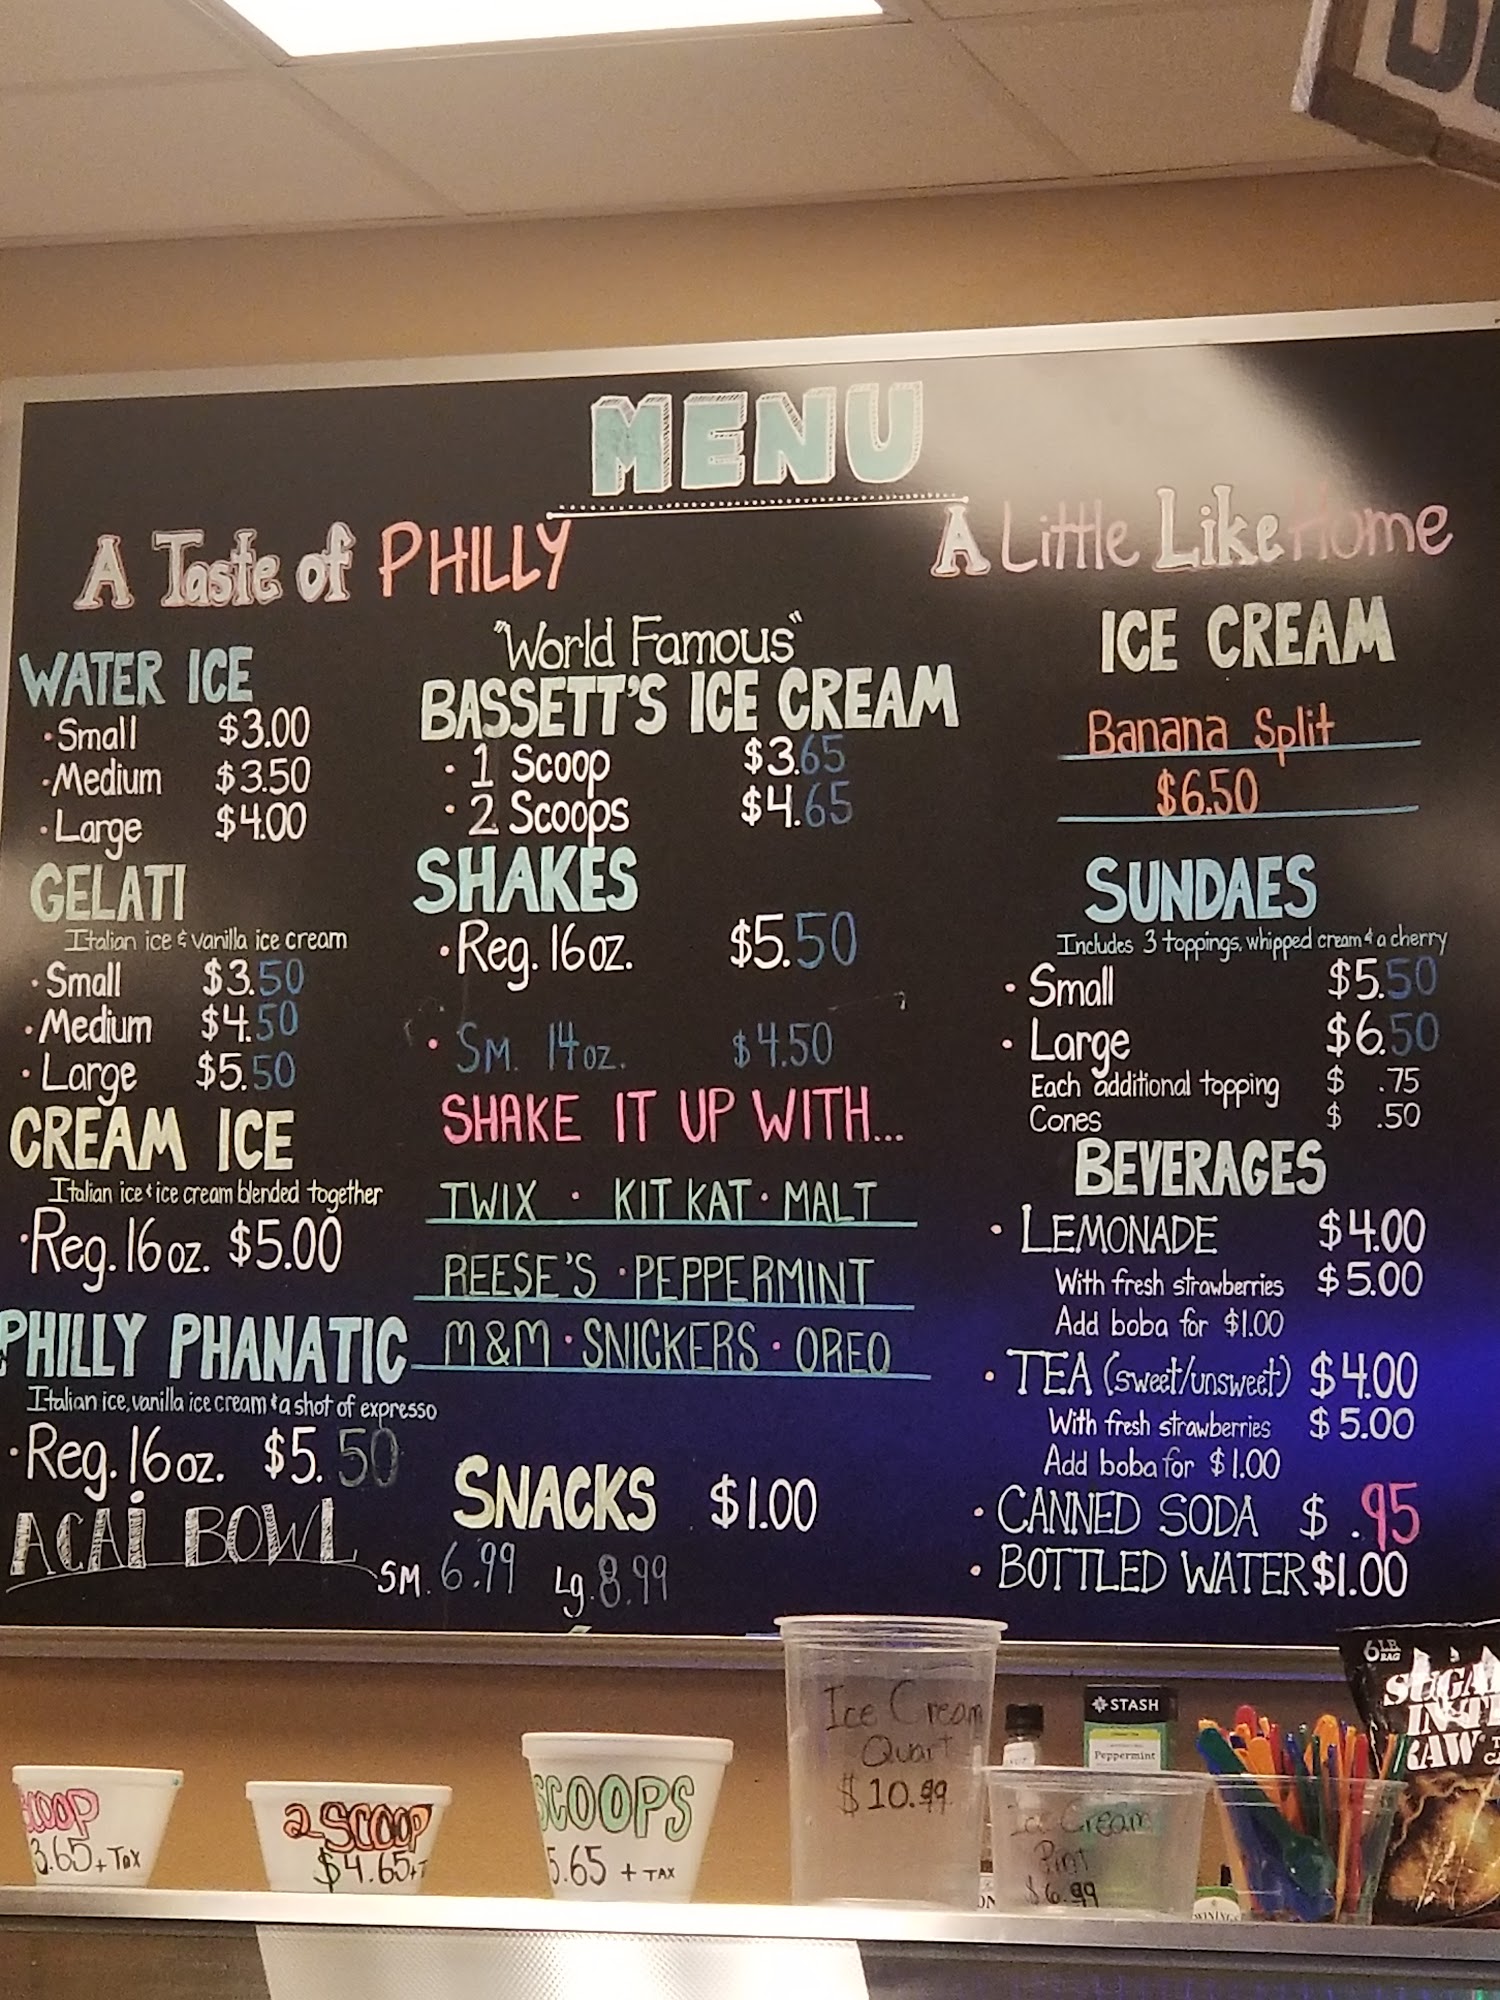 MENU
A Taste of PHILLY
WATER ICE
· Small $3.00
· Medium $3.50
· Large $4.00
GELATI
Italian ice & vanilla ice cream
· Small $3.50
· Medium $4.50
· Large $5.50
CREAM ICE
Italian ice & ice cream blended together
· Reg. 16 oz. $5.00
PHILLY PHANATIC
Italian ice, vanilla ice cream & a shot of expresso
· Reg. 16 oz. $5.50
ACAI BOWL SM. 6.99 Lg. 8.99
"World Famous"
BASSETT'S ICE CREAM
· 1 Scoop $3.65
· 2 Scoops $4.65
SHAKES
· Reg. 16 oz. $5.50
· SM. 14 oz. $4.50
SHAKE IT UP WITH...
TWIX · KIT KAT · MALT
REESE'S · PEPPERMINT
M&M · SNICKERS · OREO
SNACKS $1.00
A Little Like Home
ICE CREAM
Banana Split
$6.50
SUNDAES
Includes 3 toppings, whipped cream & a cherry
· Small $5.50
· Large $6.50
Each additional topping $ .75
Cones $ .50
BEVERAGES
· LEMONADE $4.00
With fresh strawberries $5.00
Add boba for $1.00
· TEA (sweet/unsweet) $4.00
With fresh strawberries $5.00
Add boba for $1.00
· CANNED SODA $ .95
· BOTTLED WATER $1.00
SCOOP
3.65 + Tax
2 SCOOP
$4.65 + T
SCOOPS
5.65 + TAX
Ice Cream
Quart
$10.99
Ice Cream
Pint
$6.99
STASH
Peppermint
6 LB BAG
SUGA
IN T
RAW